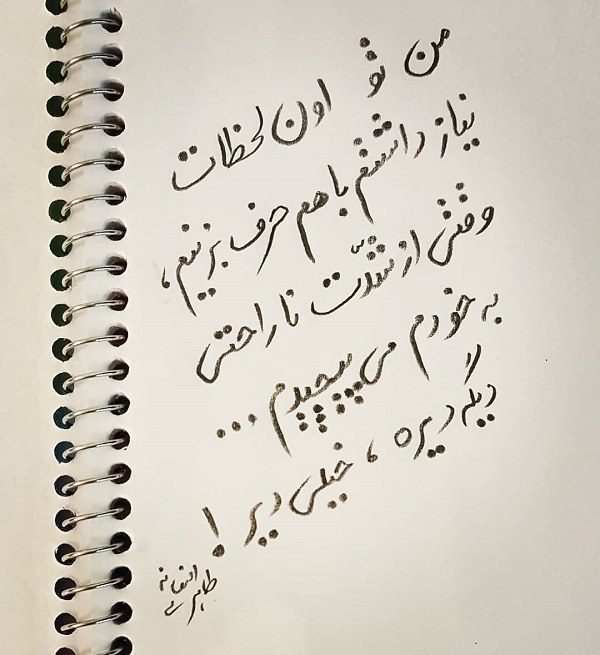 من تو اون لحظات
نیاز داشتم باهم حرف بزنیم،
وقتی از شدّت ناراحتی
به خودم می‌پیچیدم ...
دیگه دیره، خیلی دیر!